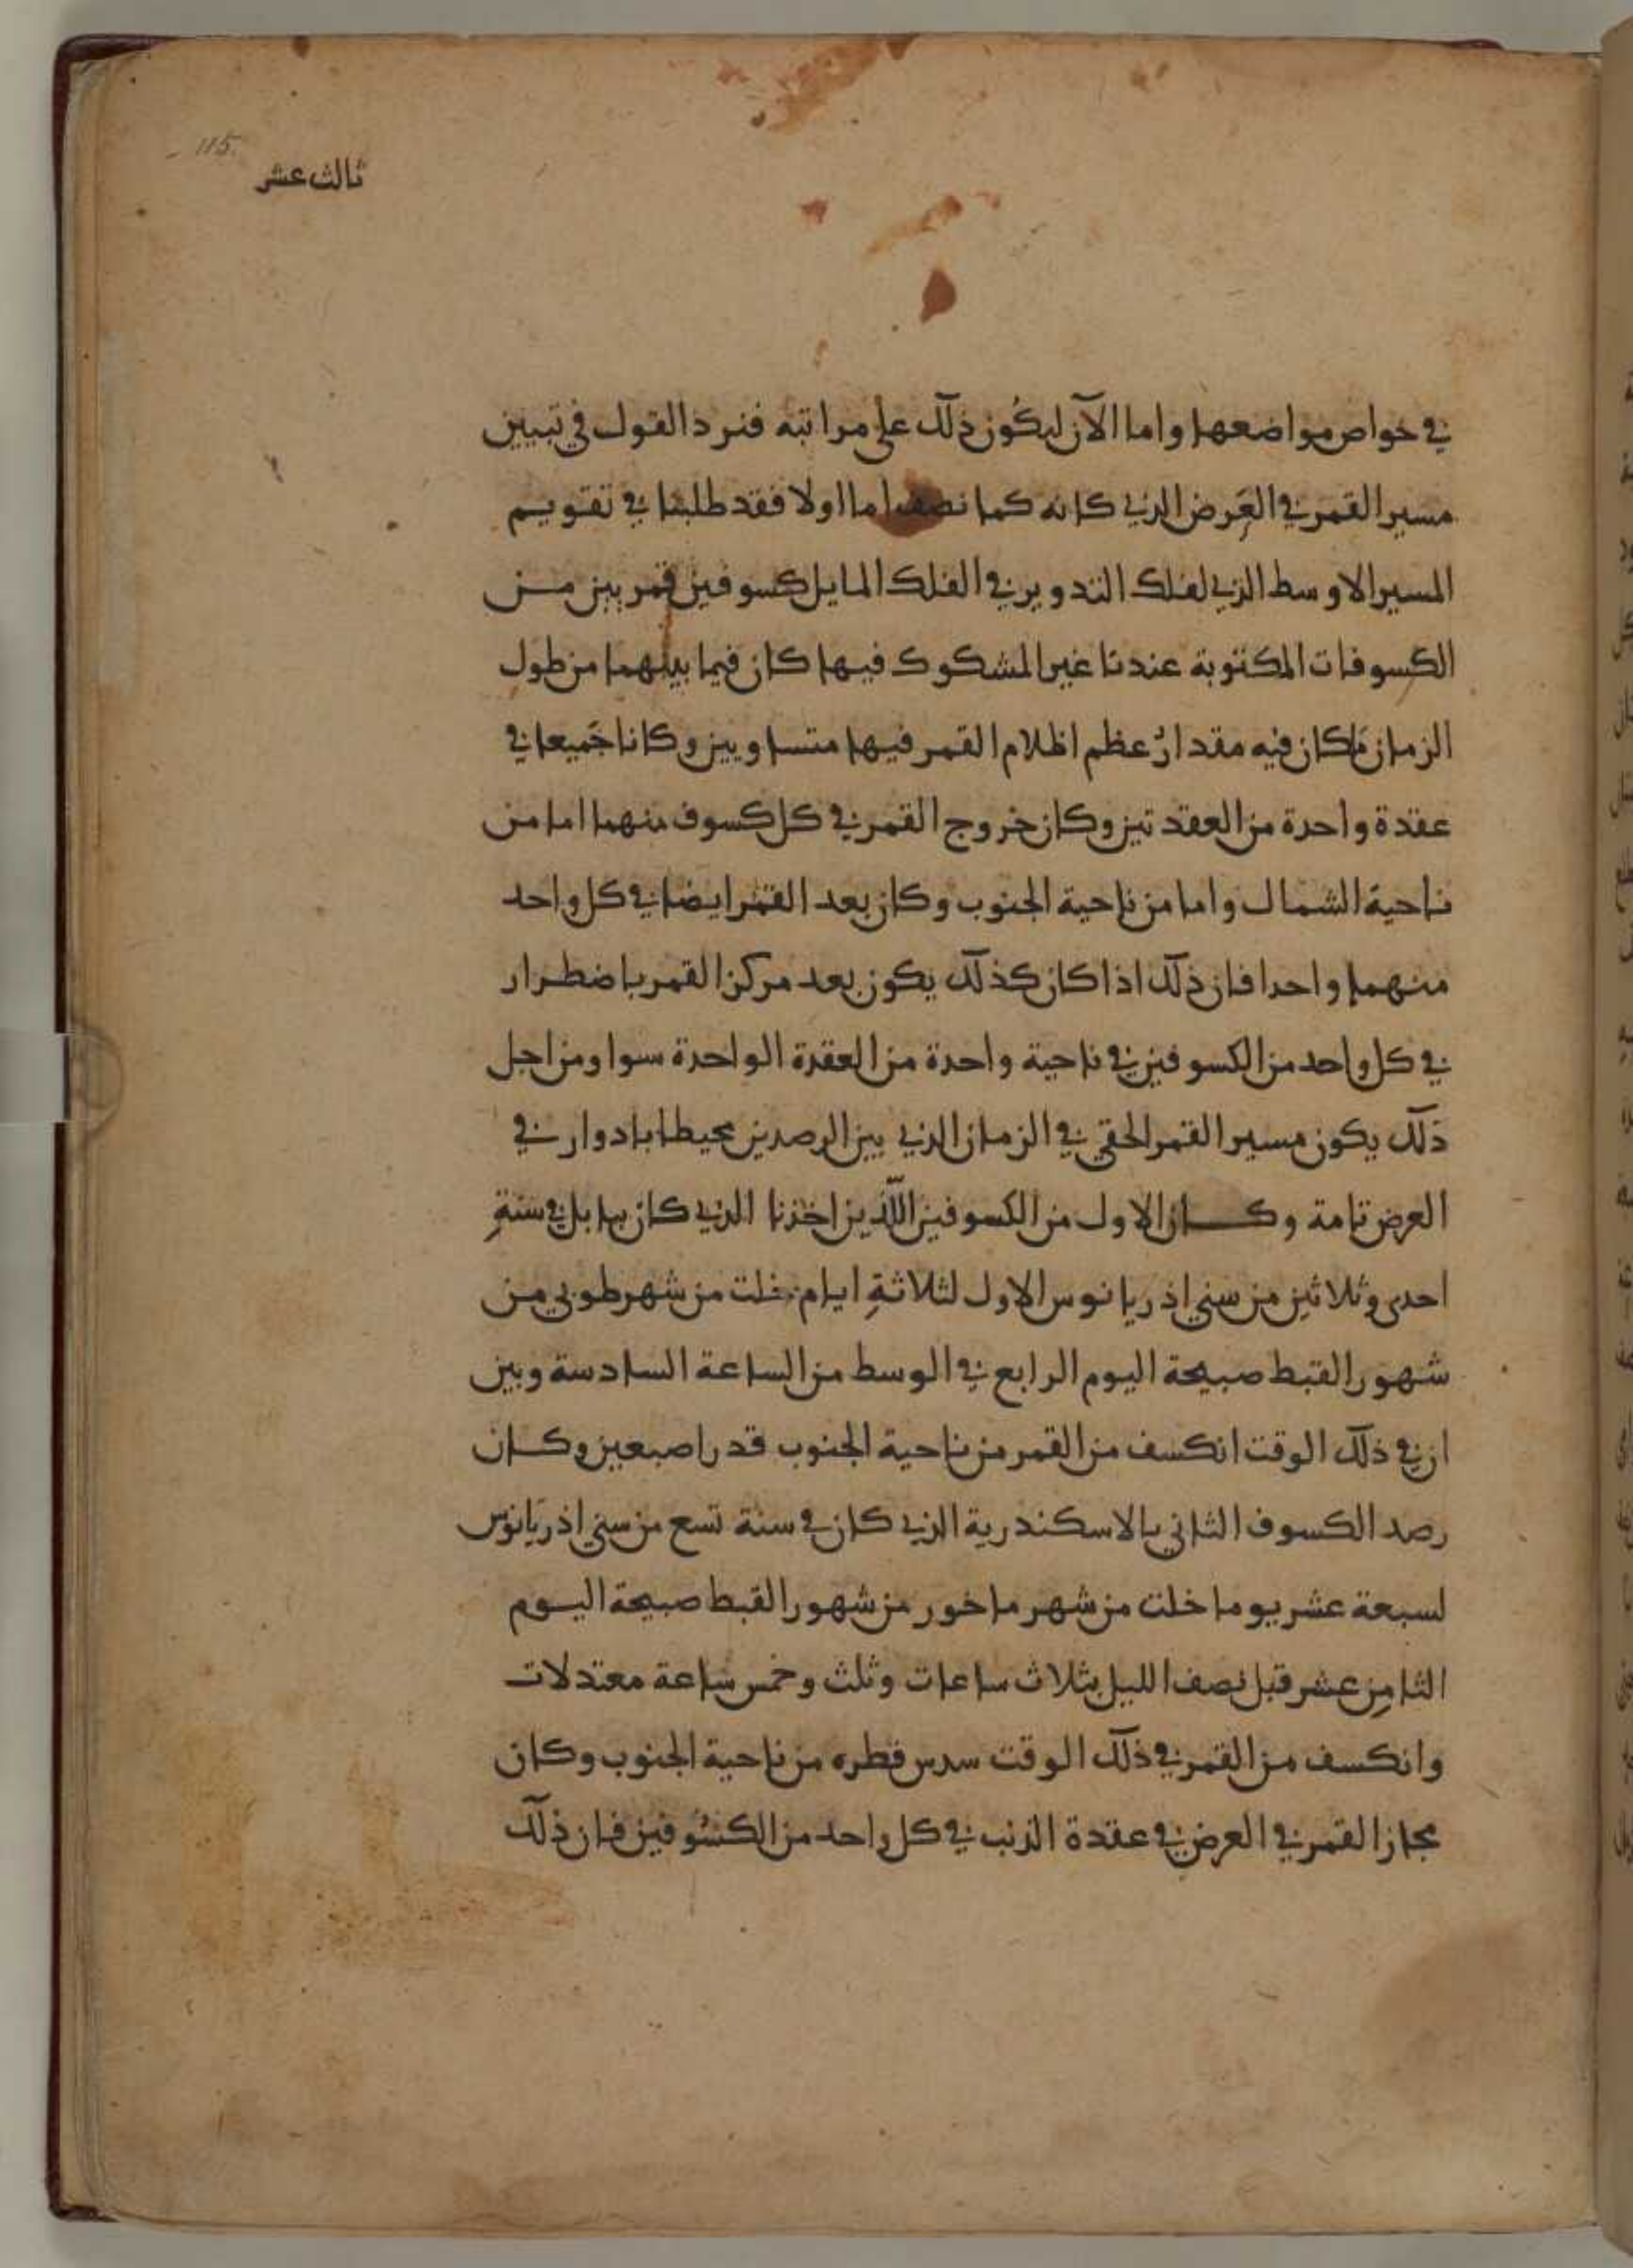 115.
ثالث عشر
في خواص مواضعها واما الآن ليكون ذلك على مراتبه فنرد القول في تبيين
مسير القمر في العرض الذي كانه كما نصف اما اولا فقد طلبنا في تقويم
المسير الاوسط الذي لفلك التدوير في الفلك المايل كسوفين قمريين من
الكسوفات المكتوبة عندنا غير المشكوك فيها كان فيما بينهما من طول
الزمان ما كان فيه مقدار عظم اظلام القمر فيها متساويين وكانا جميعا في
عقدة واحدة من العقدتين وكان خروج القمر في كل كسوف منهما اما من
ناحية الشمال واما من ناحية الجنوب وكان بعد القمر ايضا في كل واحد
منهما واحدا فان ذلك اذا كان كذلك يكون بعد مركز القمر باضطرار
في كل واحد من الكسوفين في ناحية واحدة من العقدة الواحدة سوا ومن اجل
ذلك يكون مسير القمر الحقي في الزمان الذي بين الرصدين محيطا بادوار في
العرض تامة وكان الاول من الكسوفين اللذين اخذنا الذي كان ببابل في سنةِ
احدى وثلاثين من سني اذريانوس الاول لثلاثةِ ايام خلت من شهر طوبي من
شهور القبط صبيحة اليوم الرابع في الوسط من الساعة السادسة وبين
ان في ذلك الوقت انكسف من القمر من ناحية الجنوب قدر اصبعين وكان
رصد الكسوف الثاني بالاسكندرية الذي كان في سنة تسع من سني اذريانوس
لسبعة عشر يوما خلت من شهر ماخور من شهور القبط صبيحة اليوم
الثامن عشر قبل نصف الليل بثلاث ساعات وثلث وخمس ساعة معتدلات
وانكسف من القمر في ذلك الوقت سدس قطره من ناحية الجنوب وكان
مجاز القمر في العرض في عقدة الذنب في كل واحد من الكسوفين فان ذلك